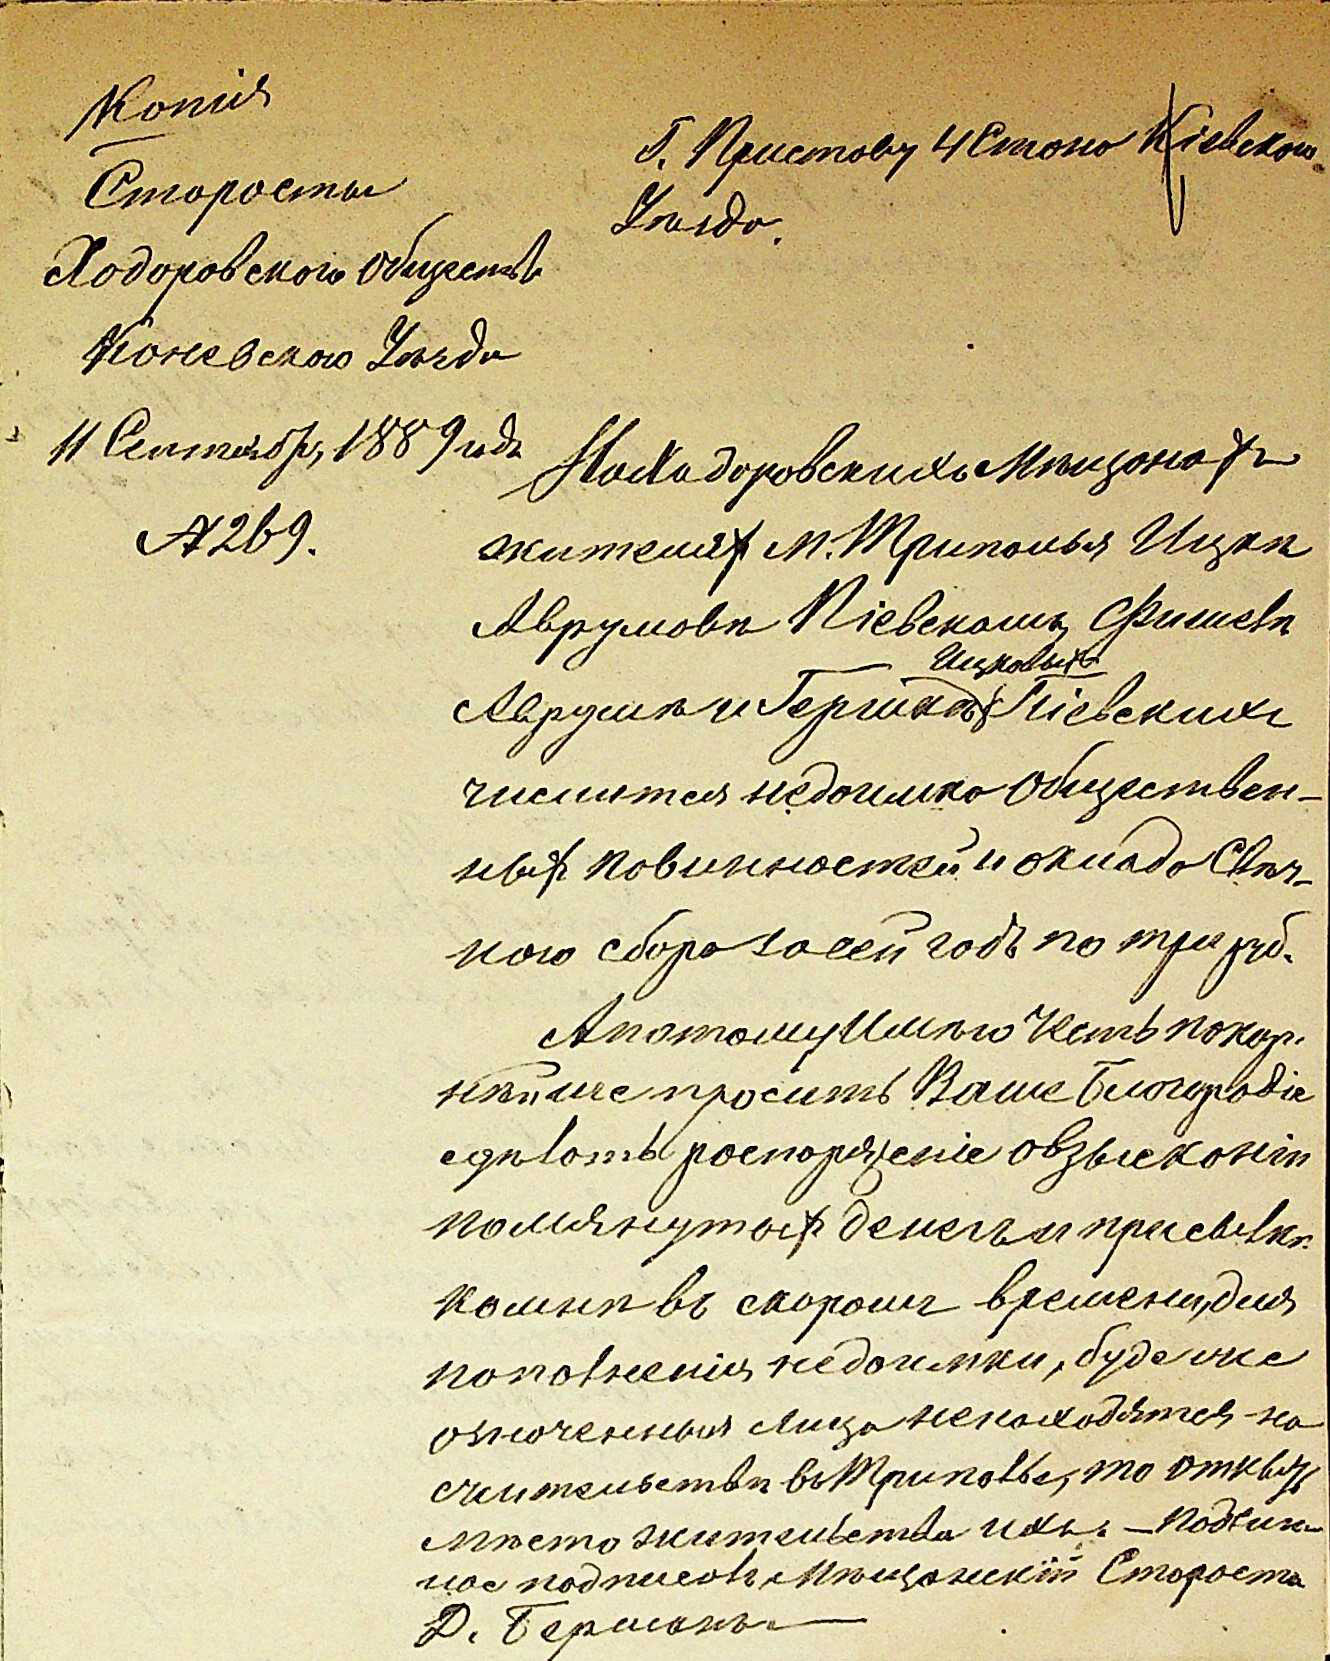 Копія
Старосты
Ходоровскаго Обществ
Каневскаго Уѣзда
11 Сентября 1889 года
№ 269.
Г. Приставу 4 Стана Кіевскаго
Уѣзда.
На Ходоровскихъ мѣщанахъ
жителях м. Триполья Ицкѣ
Аврумовѣ Кіевскомъ, Фишелѣ
Ицковыхъ
Аврумѣ и Гершкѣ Кіевскихъ
числится недоимка Обществен-
ных повинностей и оклада Свѣч-
наго сбора за сей годъ по три руб.
А потому Имѣю Честь покор-
нѣйше просить Ваше Благородіе
сдѣлать распоряженіе о взысканіи
помянутых денегъ и присылкѣ
ко мнѣ въ скоромъ времени, для
пополненія недоимки, буде же
означенныя лица не находятся на
жительствѣ въ Триполье, то открыть
мѣсто жительства ихъ. — Подлин-
ное подписалъ Мѣщанскій Староста
Д. Берманъ.